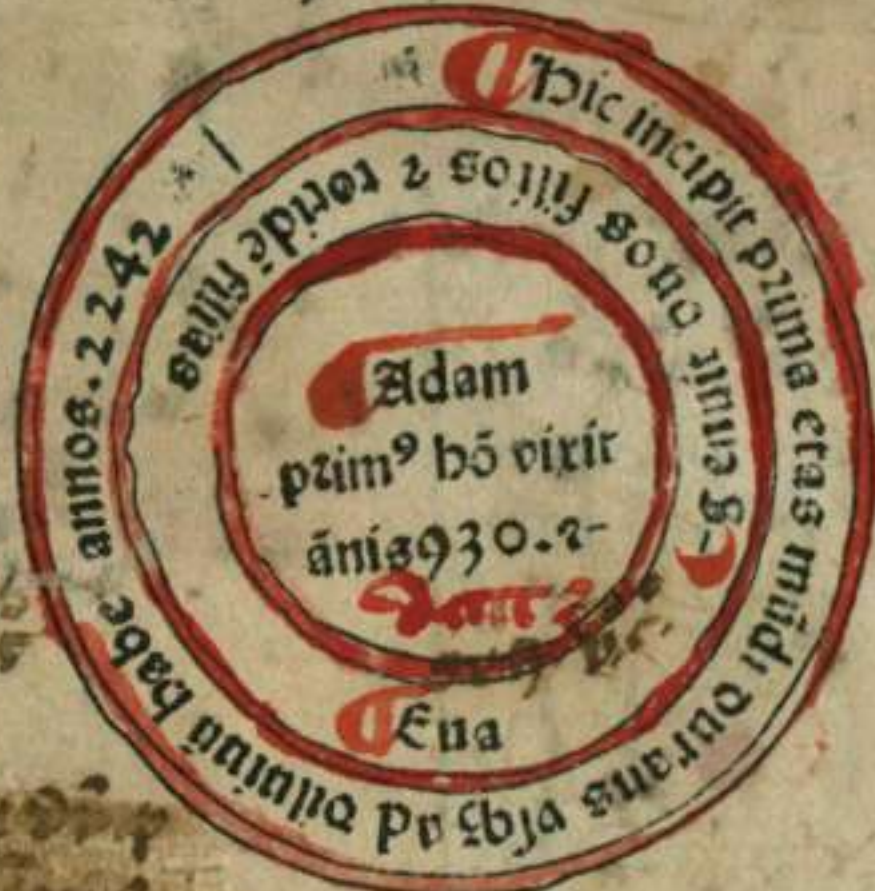 Hic incipit prima etas mūdi durans vſqꝫ ad diluuiū habe annos. 2242
genuit duos filios ⁊ totidē filias
Adam
primꝰ hō vixit
ānis 930. ⁊-
Eua